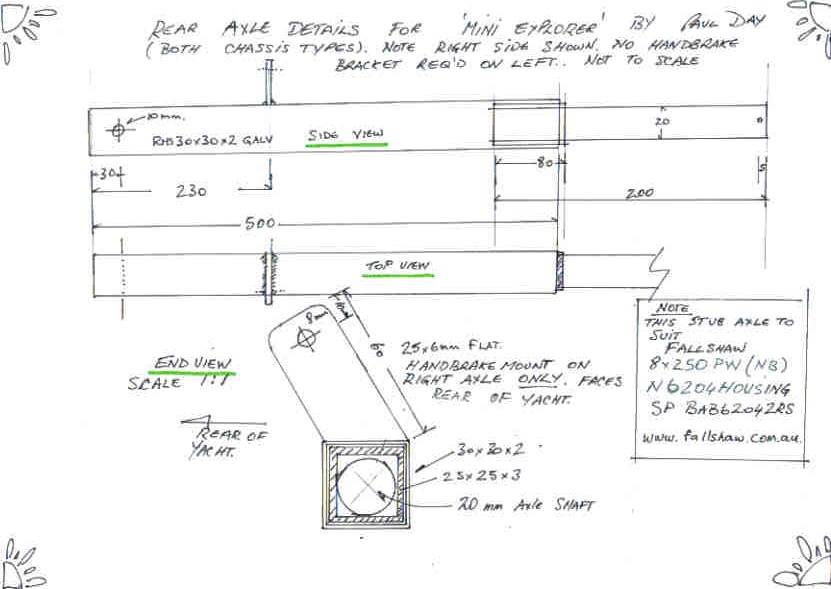 REAR AXLE DETAILS FOR 'MINI EXPLORER' BY PAUL DAY
(BOTH CHASSIS TYPES). NOTE RIGHT SIDE SHOWN. NO HANDBRAKE
BRACKET REQ'D ON LEFT.. NOT TO SCALE
10mm.
RHS 30x30x2 GALV
SIDE VIEW
20
30
80
230
200
500
TOP VIEW
8mm
60
25x6mm FLAT.
HANDBRAKE MOUNT ON
RIGHT AXLE ONLY. FACES
REAR OF YACHT.
END VIEW
SCALE 1:1
REAR OF
YACHT.
30x30x2
25x25x3
20 mm Axle SHAFT
NOTE
THIS STUB AXLE TO
SUIT
FALLSHAW
8x250 PW (NB)
N6204HOUSING
SP BAB62042RS
www.fallshaw.com.au.